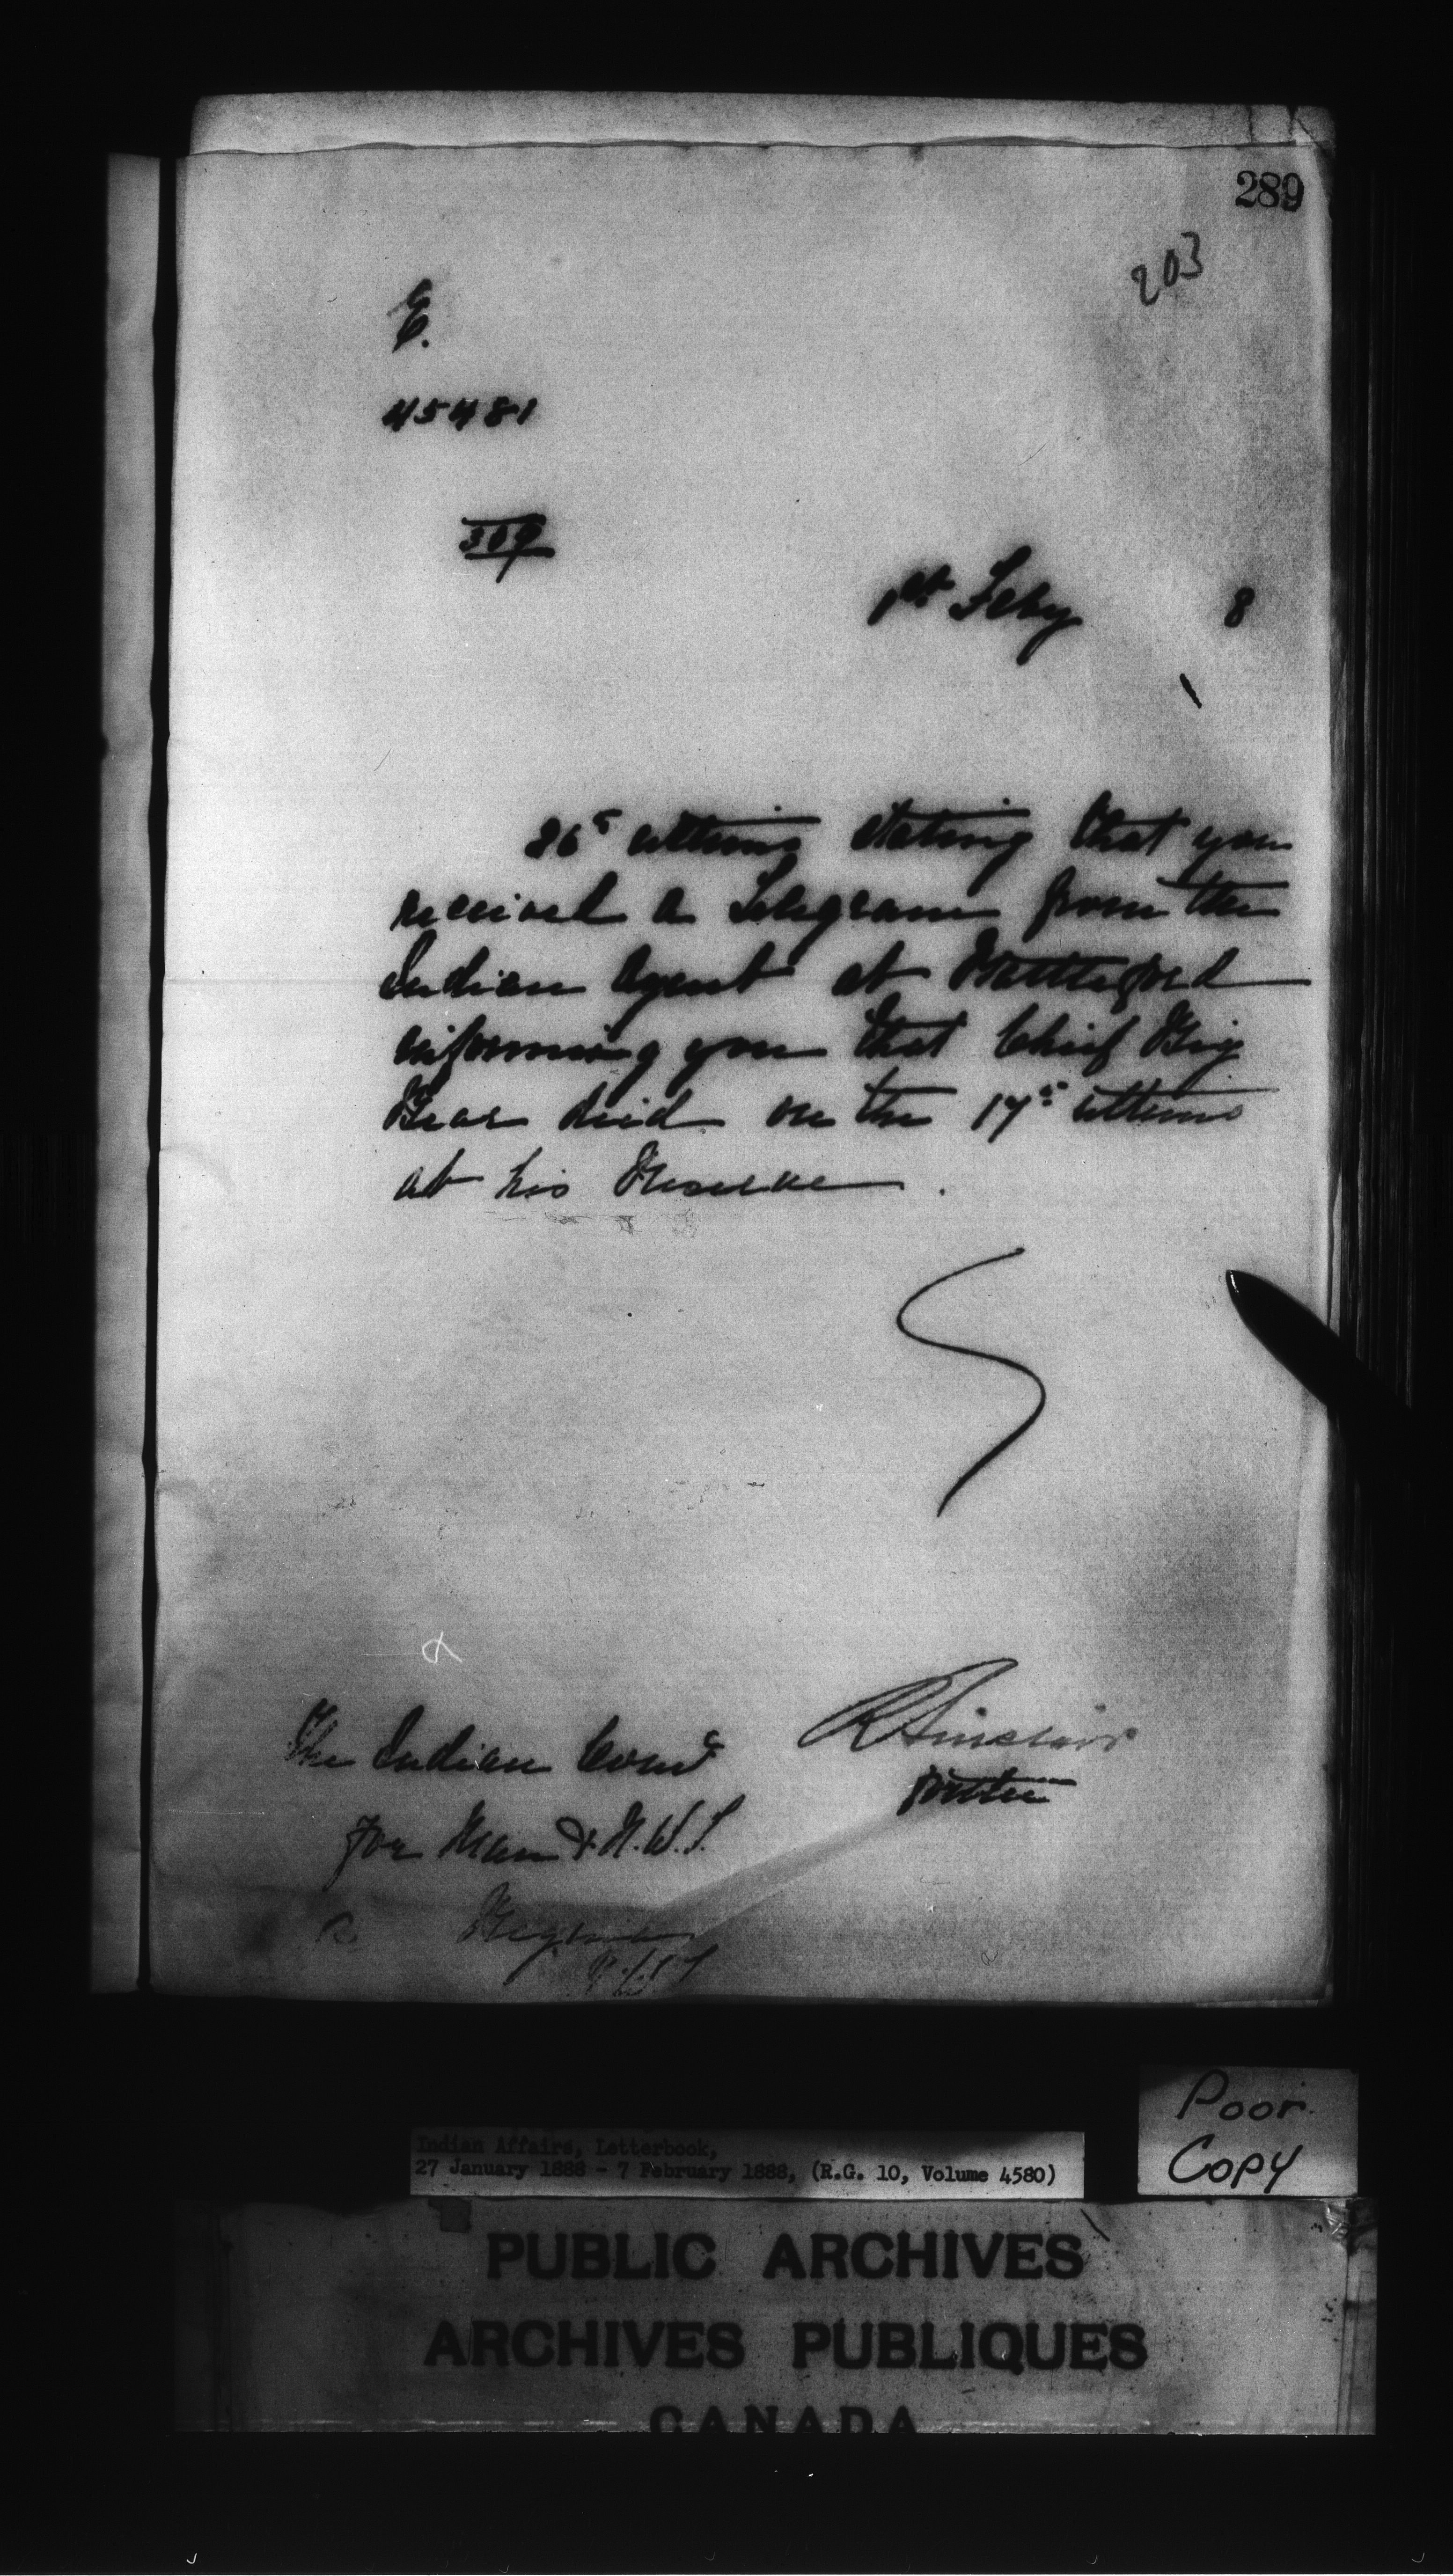 289
203
E.
45481
309
1st Feby 8
26th ultimo stating that you
received a Telegram from the
Indian Agent at Battleford
informing you that Chief Big
Bear died on the 17th ultimo
at his Reserve.
R Sinclair
The Indian Comr
for Man & N.W.T.
Regina
Poor
Copy
Indian Affairs, Letterbook,
27 January 1888 - 7 February 1888, (R.G. 10, Volume 4580)
PUBLIC ARCHIVES
ARCHIVES PUBLIQUES
CANADA